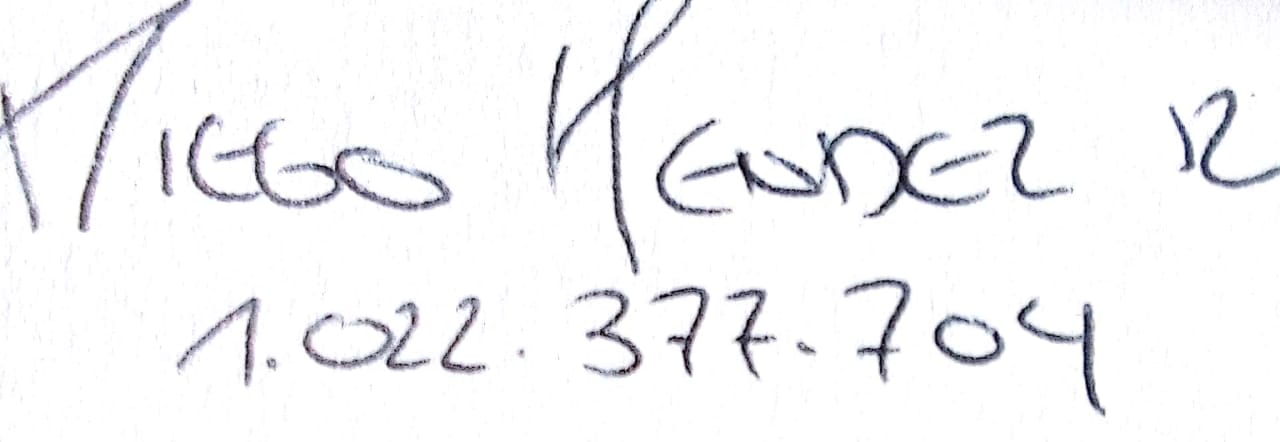 DIEGO MENDEZ R
1.022.377.704